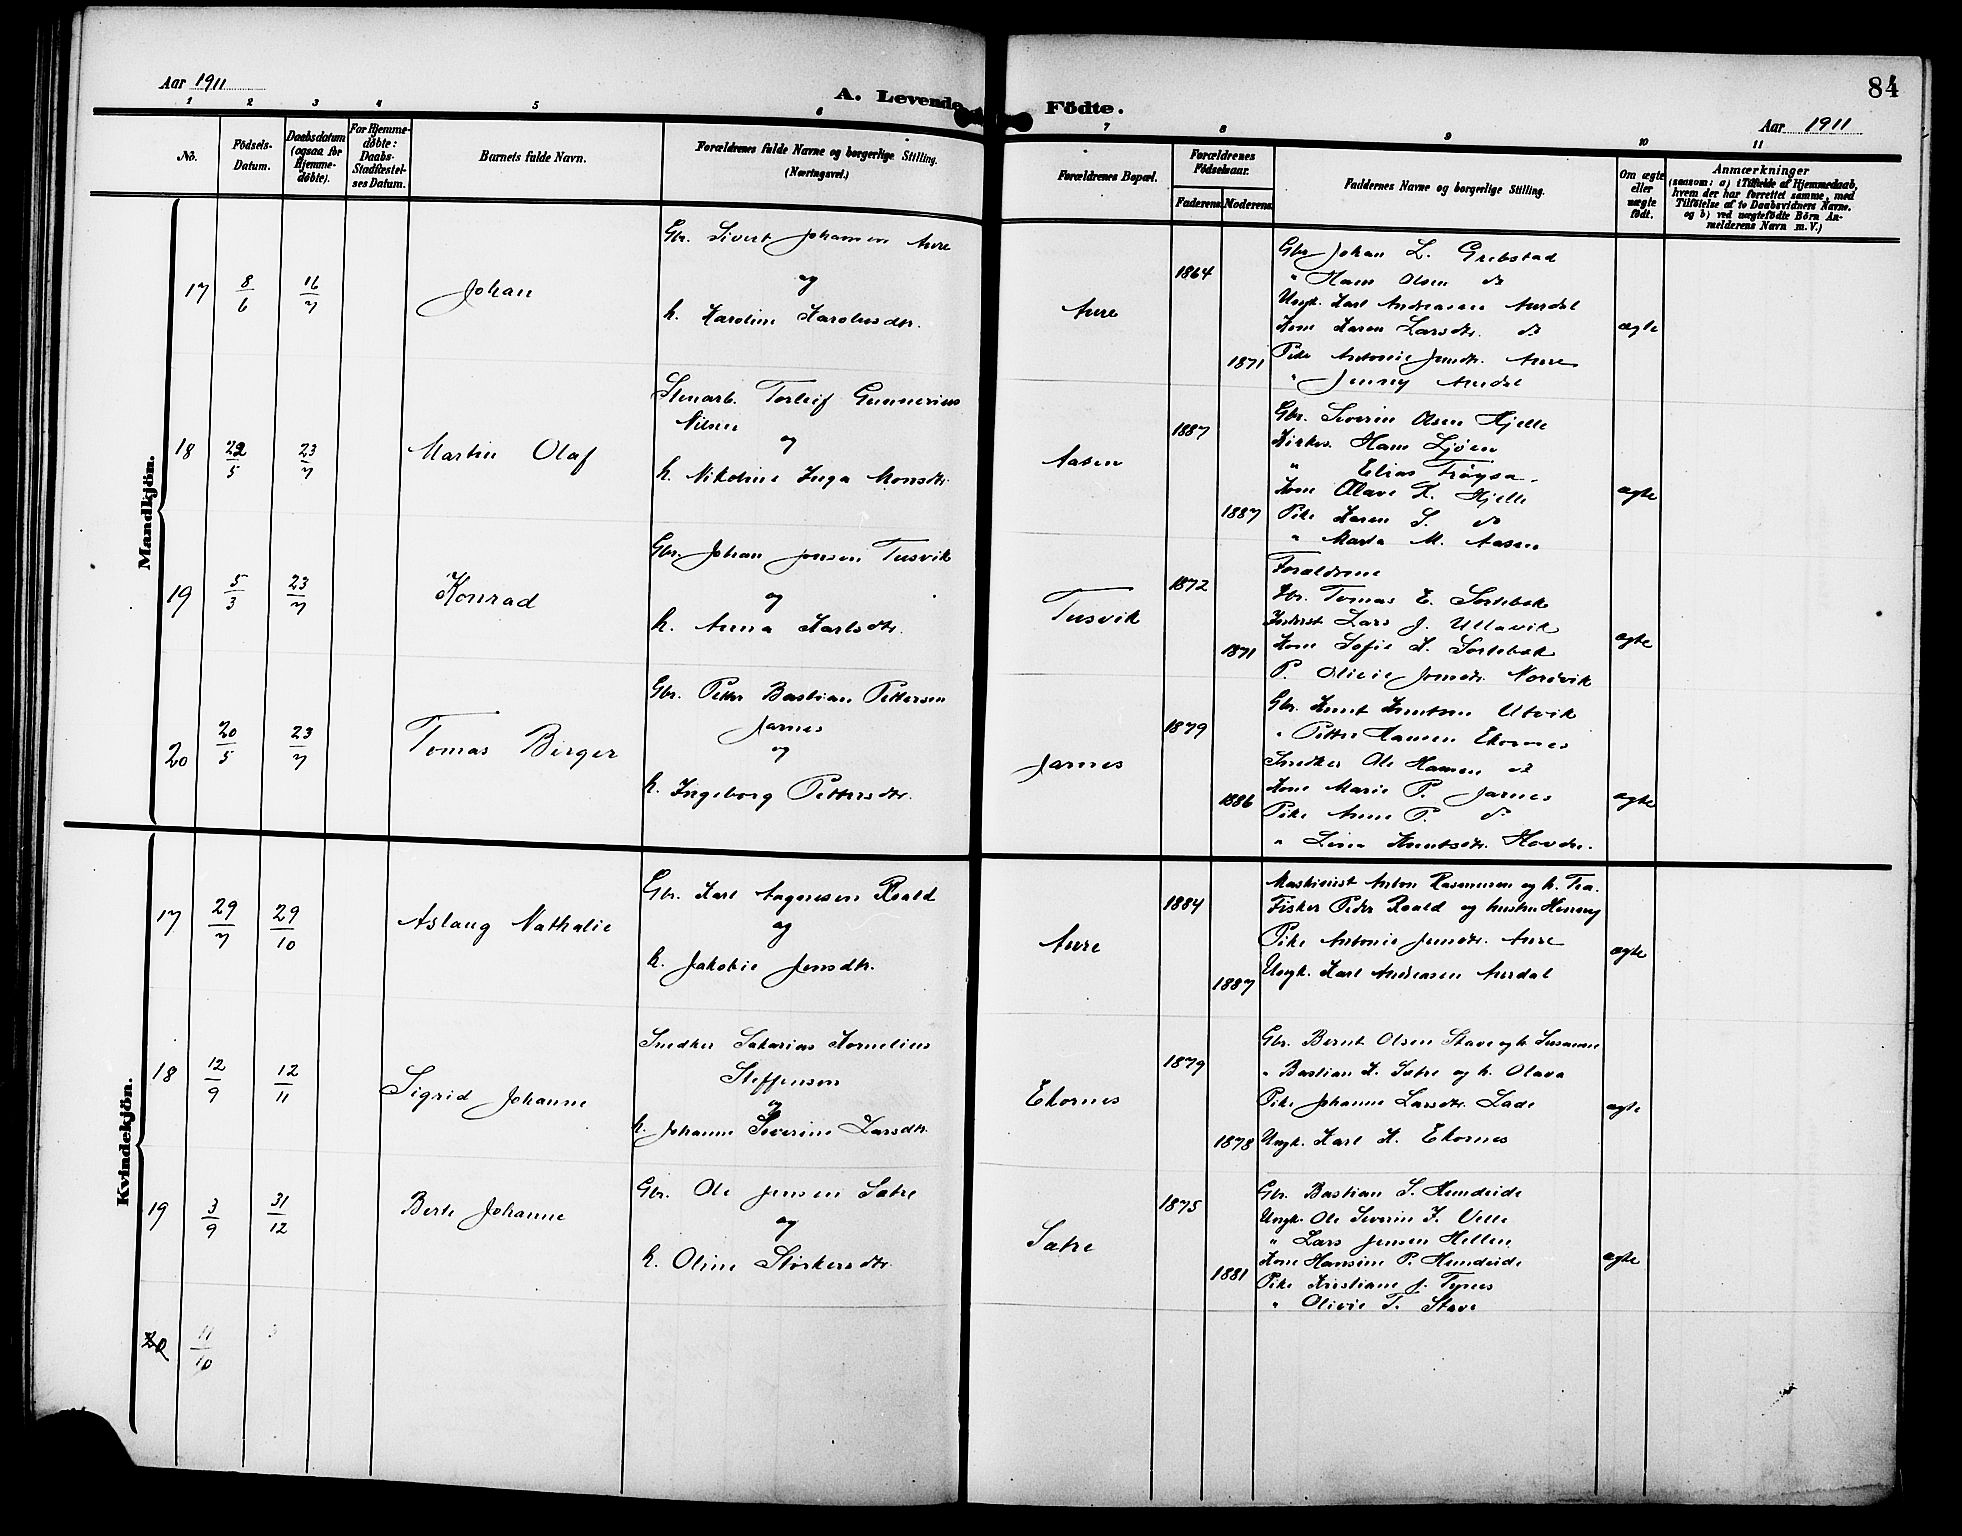 Aar 1911
A. Levende Födte.
84
Aar 1911
1 2 3 4 5 6 7 8 9 10 11
No.
Födsels-Datum.
Daabsdatum (ogsaa for Hjemme-døbte).
For Hjemme-døbte: Daabs-Stadfæstel-ses Datum.
Barnets fulde Navn.
Forældrenes fulde Navne og borgerlige Stilling. (Næringsvei.)
Forældrenes Bopæl.
Forældrenes Födselsaar.
Faderens. Moderens.
Faddernes Navne og borgerlige Stilling.
Om ægte eller uægte födt.
Anmærkninger
(saasom: a) i Tilfælde af Hjemmedaab,
hvem der har forrettet samme, med
Tilföielse af to Daabsvidners Navne.
og b) ved uægtefödte Börn An-
melderens Navn m. V.)
Mandkjön.
17 8/6 16/7 Johan
Gbr. Sivert Johansen Aure
og
h. Karoline Karolusdtr.
Aure
1864
1871
Gbr Johan L. Grebstad
" Hans Olsen do
Ungk. Karl Andreasen Aurdal
Kone Karen Larsdtr. do
Pike Antonie Jensdtr. Aure
" Jenny Aurdal
ægte
18 22/5 23/7 Martin Olaf
Stenarb. Torleif Gunnerius
Nilsen
og
h. Nikoline Inga Monsdtr.
Aasen
1887
1887
Gbr. Severin Olsen Hjelle
Kirkes. Hans Ljøen
" Elias Frøysa
Kone Olave K. Hjelle
Pike Karen S. do
" Marta M. Aasen
ægte
19 5/3 23/7 Konrad
Gbr. Johan Jonsen Tusvik
og
h. Anna Karlsdtr.
Tusvik
1872
1871
Forældrene
Gbr. Tomas E. Sortebak
Inderst Lars J. Ullavik
Kone Sofie K. Sortebak
P. Olivie Jonsdtr. Nordvik
ægte
20 20/5 23/7 Tomas Birger
Gbr. Petter Bastian Pettersen
Jarnes
og
h. Ingeborg Pettersdtr.
Jarnes
1879
1886
Gbr. Knut Knutsen Utvik
" Petter Hansen Ekornes
Snedker Ole Hansen do
Kone Marie P. Jarnes
Pike Anne P. do
" Lina Knutsdtr. Hovde.
ægte
Kvindekjön.
17 29/7 29/10 Aslaug Nathalie
Gbr. Karl Aagnesen Roald
og
h. Jakobie Jensdtr.
Aure
1884
1887
Maskinist Anton Rasmussen og h. Tea.
Fisker Peder Roald og hustru Henny
Pike Antonie Jensdtr. Aure
Ungk. Karl Andreasen Aurdal
ægte
18 12/9 12/11 Sigrid Johanne
Snedker Sakarias Kornelius
Steffensen
og
h. Johanne Severine Larsdtr.
Ekornes
1879
1878
Gbr. Bernt Olsen Stave og h. Susanne
" Bastian K. Sætre og h. Olava
Pike Johanne Larsdtr. Lade
Ungk. Karl K. Ekornes
ægte
19 3/9 31/12 Berte Johanne
Gbr. Ole Jensen Sætre
og
h. Oline Størkersdtr.
Sætre
1875
1881
Gbr. Bastian S. Hundeide
Ungk. Ole Severin I. Velle
" Lars Jensen Hellen
Kone Hansine P. Hundeide
Pike Kristiane J. Tynes
" Olivie T. Stave
ægte
20 11/10 3